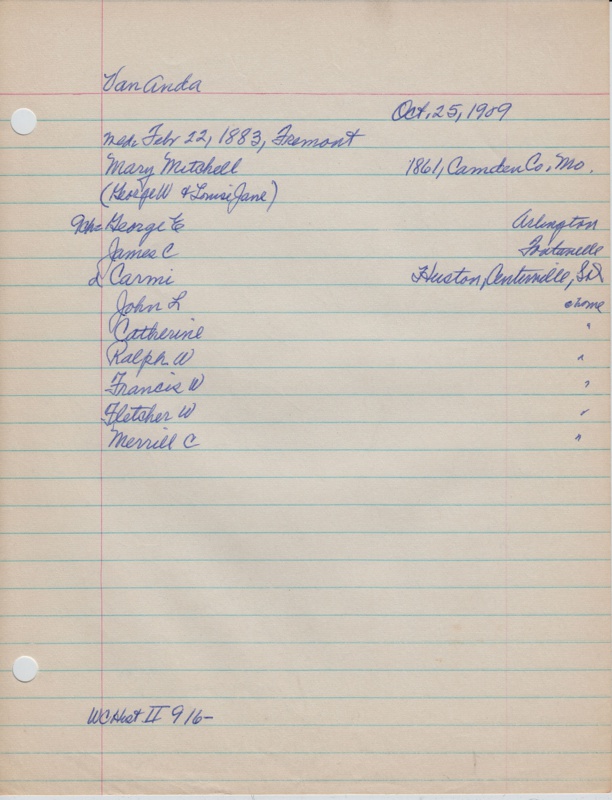 Van Anda
Oct. 25, 1909
mar. Febr 22, 1883, Fremont
Mary Mitchell 1861, Camden Co. Mo.
(George W & Louise Jane)
9ch= George E Arlington
James C Fontanelle
d Carmi Huston, Centerville, Sd
John L @ home
Catherine "
Ralph W "
Francis W "
Fletcher W "
Merrill C "
WC Hist II 916-